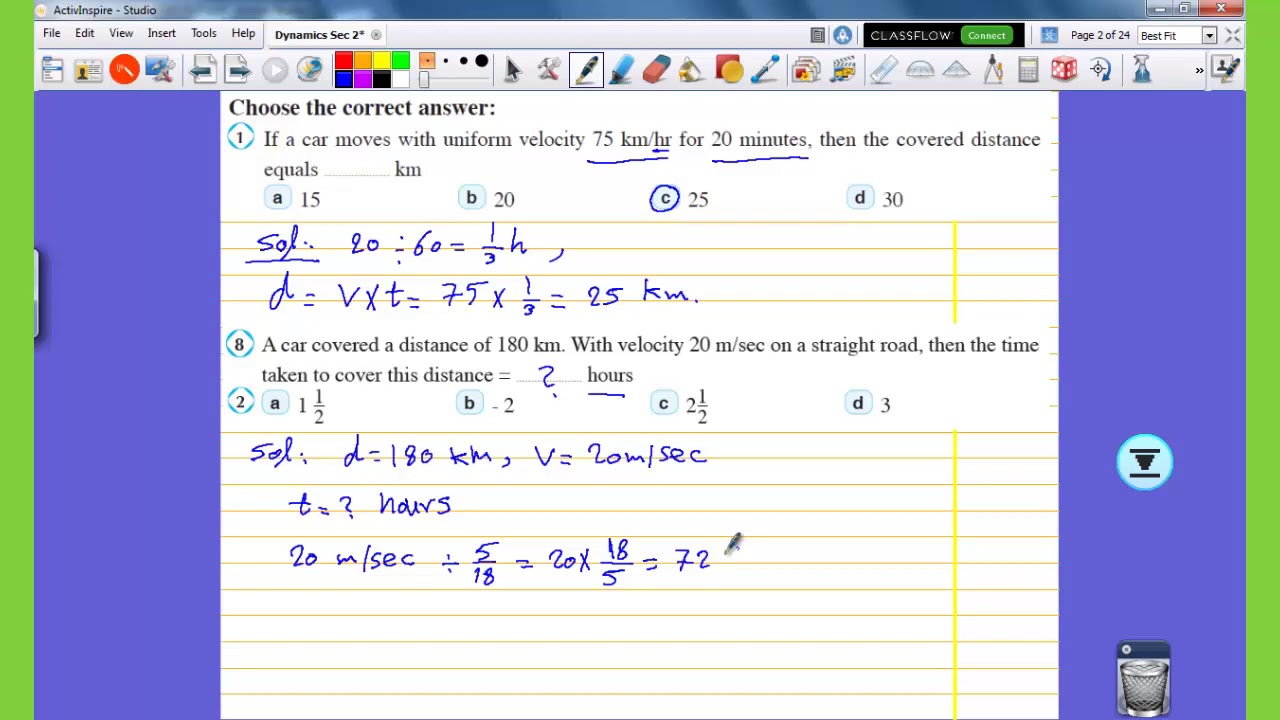 ActivInspire - Studio
File Edit View Insert Tools Help Dynamics Sec 2* CLASSFLOW Connect Page 2 of 24 Best Fit
Choose the correct answer:
1 If a car moves with uniform velocity 75 km/hr for 20 minutes, then the covered distance
equals ............ km
a 15 b 20 c 25 d 30
Sol: 20 ÷ 60 = 1/3 h ,
d = V x t = 75 x 1/3 = 25 km.
8 A car covered a distance of 180 km. With velocity 20 m/sec on a straight road, then the time
taken to cover this distance = ... ? ... hours
2 a 1 1/2 b - 2 c 2 1/2 d 3
Sol: d = 180 km, V = 20 m/sec
t = ? hours
20 m/sec ÷ 5/18 = 20 x 18/5 = 72